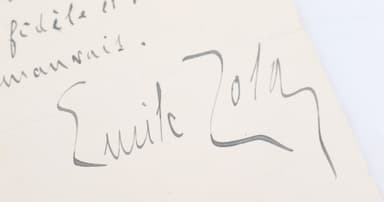 fidèle et
mauvais.
Emile Zola